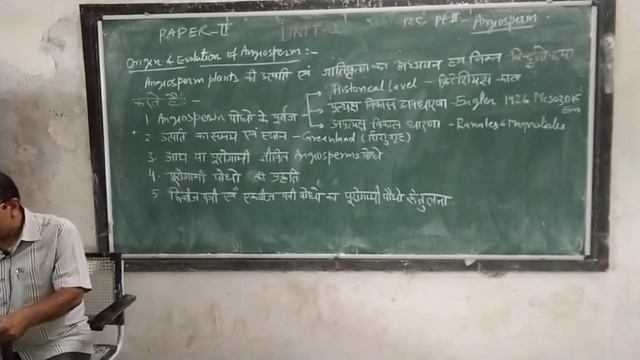 PAPER-II UNIT-1 Pt II - Angiosperm
Origin & Evolution of Angiosperm :-
Angiosperm plants की उत्पत्ति एवं जातिवृत्त का अध्ययन हम निम्न बिन्दुओं द्वारा
करते हैं :-
Historical Level - क्रिटेशियस काल
1. Angiosperm पौधों के पूर्वज
प्रत्यक्ष विकास अवधारणा - Engler 1926 Mesozoic
Era
अप्रत्यक्ष विकास धारणा - Ranales & Magnoliales
2. उत्पत्ति का समय एवं स्थान - Greenland (शिशुगृह)
3. आद्य या पूरोगामी जीवित Angiosperms पौधे
4. पूरोगामी पौधों की प्रकृति
5. द्विबीज पत्री एवं एकबीज पत्री पौधों का पूरोगामी पौधों से तुलना